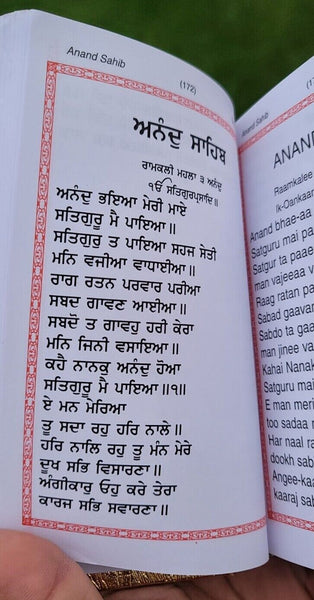 Anand Sahib
(172)
ਅਨੰਦੁ ਸਾਹਿਬ
ਰਾਮਕਲੀ ਮਹਲਾ ੩ ਅਨੰਦੁ
ੴ ਸਤਿਗੁਰਪ੍ਰਸਾਦਿ॥
ਅਨੰਦੁ ਭਇਆ ਮੇਰੀ ਮਾਏ
ਸਤਿਗੁਰੂ ਮੈ ਪਾਇਆ॥
ਸਤਿਗੁਰੁ ਤ ਪਾਇਆ ਸਹਜ ਸੇਤੀ
ਮਨਿ ਵਜੀਆ ਵਾਧਾਈਆ॥
ਰਾਗ ਰਤਨ ਪਰਵਾਰ ਪਰੀਆ
ਸਬਦ ਗਾਵਣ ਆਈਆ॥
ਸਬਦੋ ਤ ਗਾਵਹੁ ਹਰੀ ਕੇਰਾ
ਮਨਿ ਜਿਨੀ ਵਸਾਇਆ॥
ਕਹੈ ਨਾਨਕੁ ਅਨੰਦੁ ਹੋਆ
ਸਤਿਗੁਰੂ ਮੈ ਪਾਇਆ॥੧॥
ਏ ਮਨ ਮੇਰਿਆ
ਤੂ ਸਦਾ ਰਹੁ ਹਰਿ ਨਾਲੇ॥
ਹਰਿ ਨਾਲਿ ਰਹੁ ਤੂ ਮੰਨ ਮੇਰੇ
ਦੂਖ ਸਭਿ ਵਿਸਾਰਣਾ॥
ਅੰਗੀਕਾਰੁ ਓਹੁ ਕਰੇ ਤੇਰਾ
ਕਾਰਜ ਸਭਿ ਸਵਾਰਣਾ॥
(173)
Anand Sahib
ANAN
Raamkalee
Ik-Oankaar
Anand bhae-aa
Satguru mai pa
Satgur ta paae
man vajeeaa v
Raag ratan pa
Sabad gaavan
Sabdo ta gaav
man jinee va
Kahai Nanak
Satguru mai
E man meri
too sadaa r
Har naal ra
dookh sab
Angee-kaa
kaaraj sab